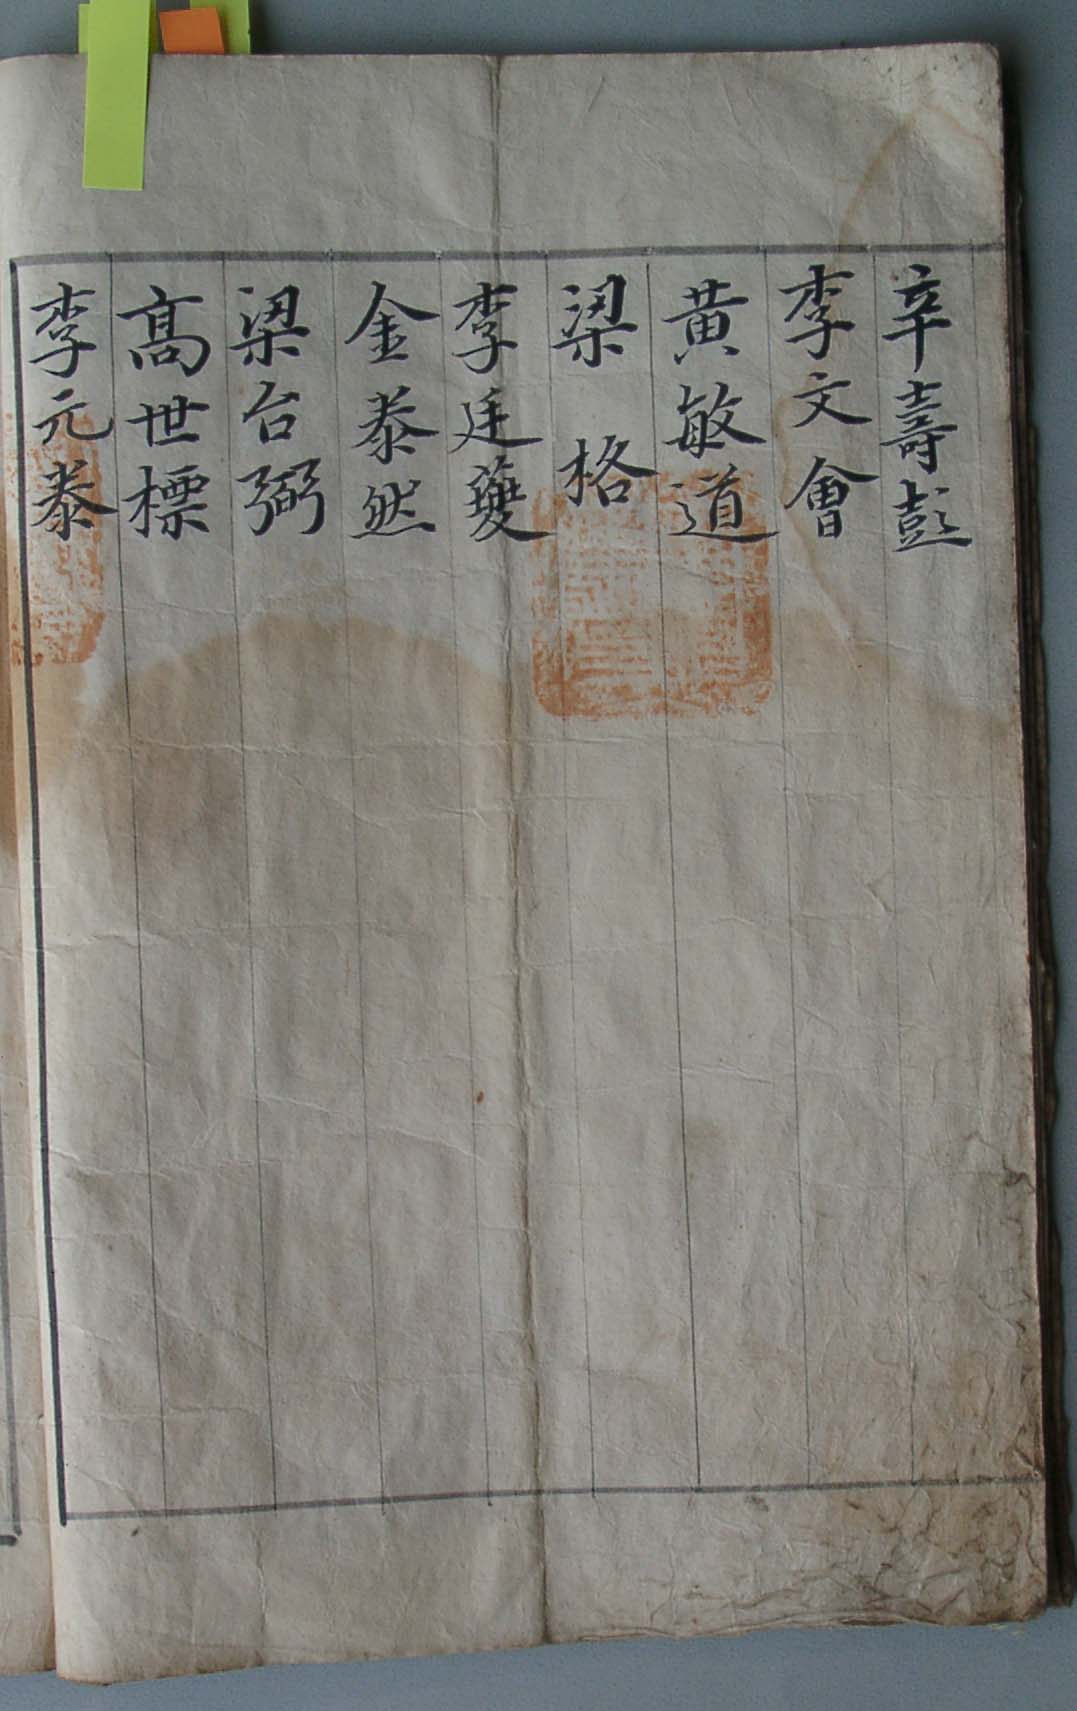 辛壽彭
李文會
黃敏道
梁格
李廷夔
金泰然
梁台弼
高世標
李元泰